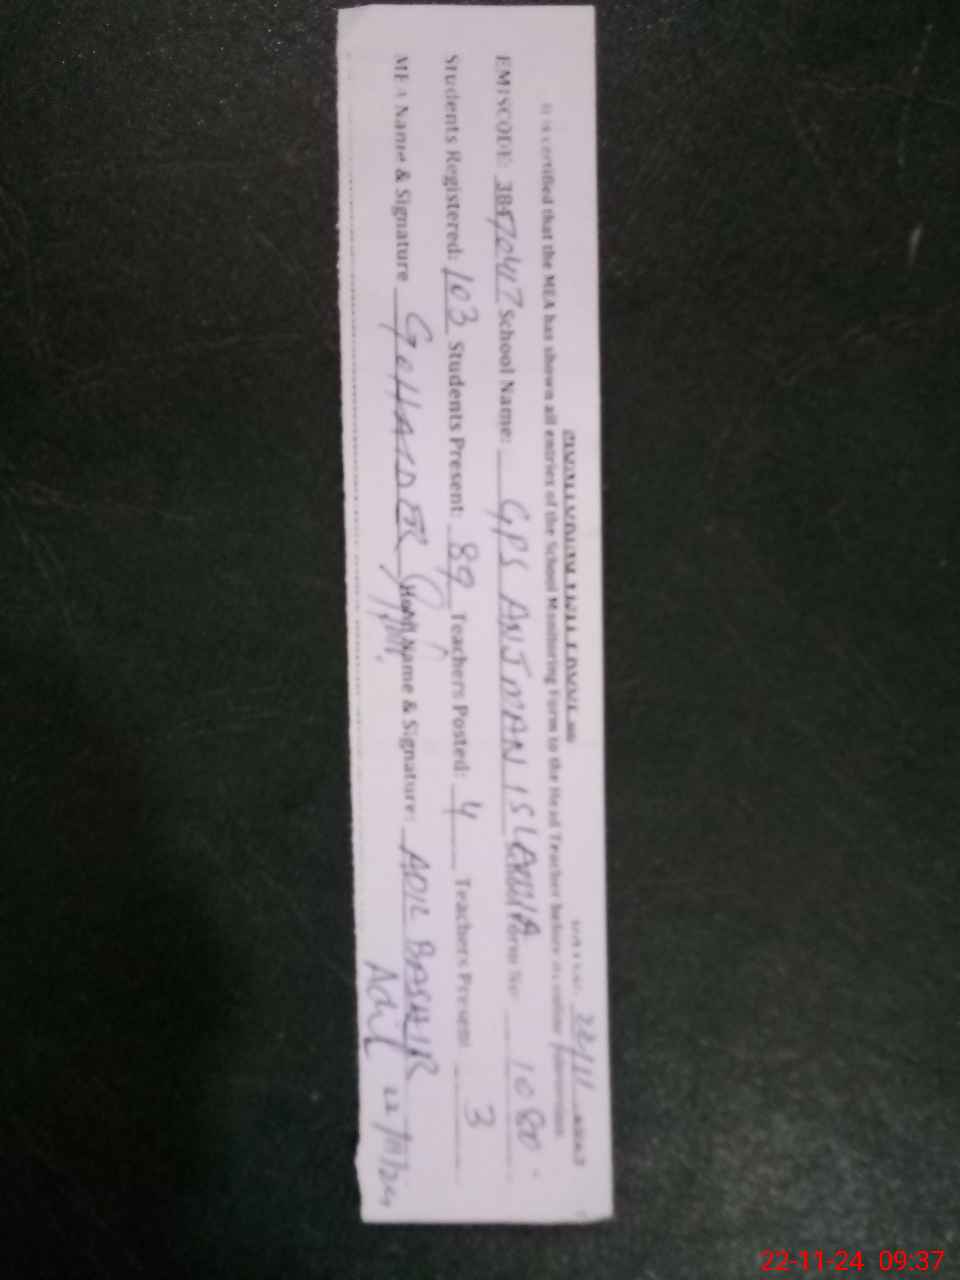 22/11
It is certified that the MEA has shown all entries of the School Monitoring Form to the Head Teacher before its online
EMISCODE: School Name: GPS ANJMAN ISLAMIA Form Sr: 1080
Students Registered: 103 Students Present: 89 Teachers Posted: 4 Teachers Present: 3
MEA Name & Signature G HAIDER Name & Signature: ADIL BASHIR
Adil 22/11/24
22-11-24 09:37